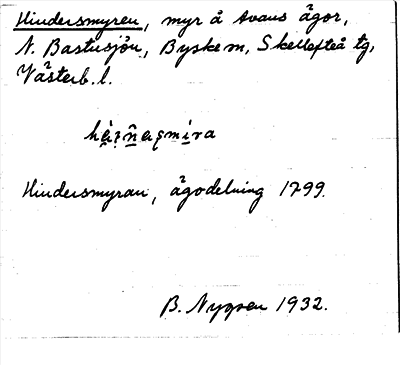 Hindersmyren, myr å Avans ägor,
N. Bastusjön, Byske m, Skellefteå tg,
Västerb. l.
Hindersmyran, ägodelning 1799.
B. Nygren 1932.